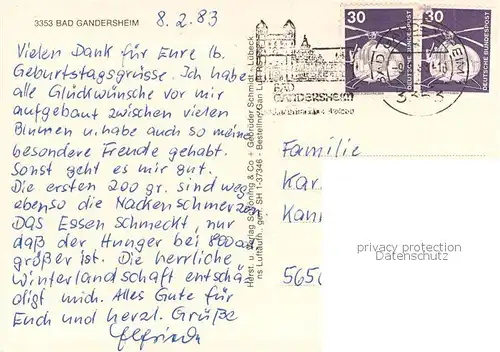 3353 BAD GANDERSHEIM
8.2.83
Vielen Dank für Eure lb.
Geburtstagsgrüsse. Ich habe
alle Glückwünsche vor mir
aufgebaut zwischen vielen
Blumen u. habe auch so meine
besondere Freude gehabt.
Sonst geht es mir gut.
Die ersten 200 gr. sind weg
ebenso die Nackenschmerzen.
DAS Essen schmeckt, nur
daß der Hunger bei 800 cal
größer ist. Die herrliche
Winterlandschaft entschä-
digt mich. Alles Gute für
Euch und herzl. Grüße
Elfriede
Herst. u. Verlag Schöning & Co + Gebrüder Schmidt, Lübeck
ns Luftaufn., gen. SH 1-37346 - Bestellnr. Gan
BAD
GANDERSHEIM
30
DEUTSCHE BUNDESPOST
30
DEUTSCHE BUNDESPOST
Familie
Kar
Kan
565
privacy protection
Datenschutz